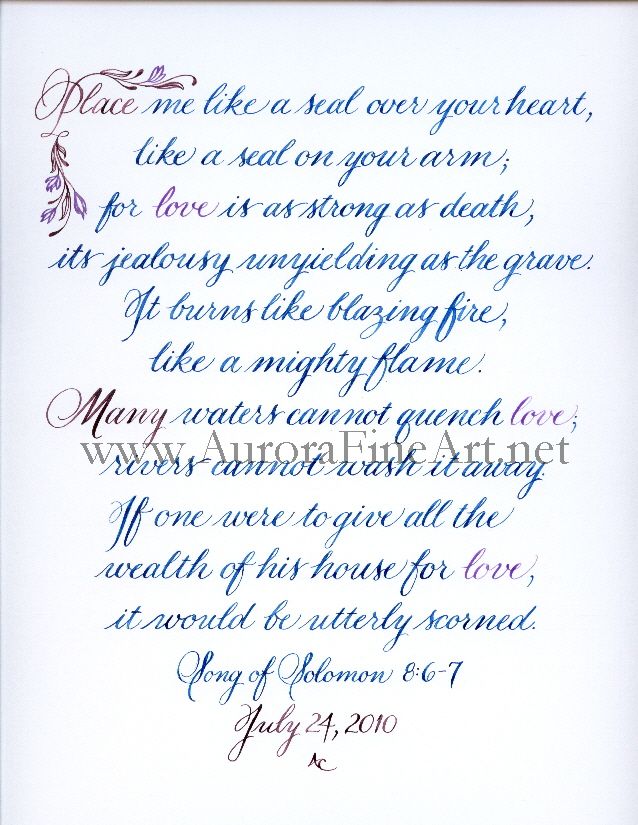 Place me like a seal over your heart,
like a seal on your arm;
for love is as strong as death,
its jealousy unyielding as the grave.
It burns like blazing fire,
like a mighty flame.
Many waters cannot quench love;
www.AuroraFineArt.net
rivers cannot wash it away.
If one were to give all the
wealth of his house for love,
it would be utterly scorned.
Song of Solomon 8:6-7
July 24, 2010
AC